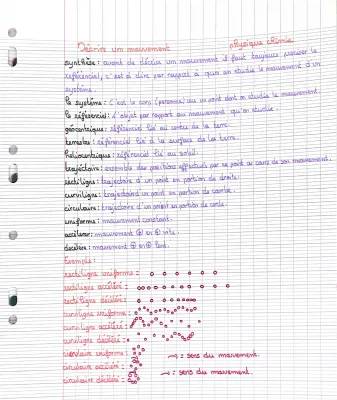 Décrire un mouvement physique chimie
synthèse: avant de décrire un mouvement il faut toujours préciser le
référentiel, c'est à dire par rapport à quoi on étudie le mouvement d'un
système.
Le système: c'est le corps (personne) ou un point dont on étudie le mouvement.
Le référentiel: l'objet par rapport au mouvement qu'on étudie.
géocentrique: référentiel lié au centre de la terre.
terrestre: référentiel lié à la surface de la terre.
héliocentrique: référentiel lié au soleil.
trajectoire: ensemble des positions effectués par ce point au cours de son mouvement.
rectiligne: trajectoire d'un point en portion de droite.
curviligne: trajectoire d'un point en portion de courbe.
circulaire: trajectoire d'un point en portion de cercle.
uniforme: mouvement constant.
accélérer: mouvement ⊕ en ⊕ vite.
décélérer: mouvement ⊕ en ⊕ lent.
Exemple:
rectiligne uniforme:
rectiligne accéléré:
rectiligne décéléré:
curviligne uniforme:
curviligne accéléré:
curviligne décéléré:
circulaire uniforme: → : sens du mouvement.
circulaire accéléré:
circulaire décéléré: → : sens du mouvement.